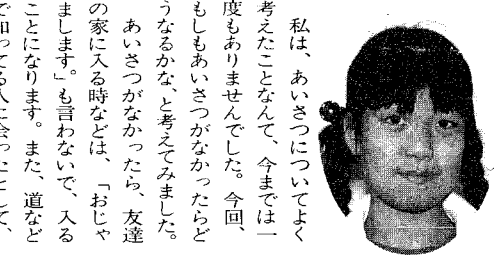 私は、あいさつについてよく
考えたことなんて、今までは一
度もありませんでした。今回、
もしもあいさつがなかったらど
うなるかな、と考えてみました。
あいさつがなかったら、友達
の家に入る時などは、「おじゃ
まします。」も言わないで、入る
ことになります。また、道など
で知ってる人に会ったとして、